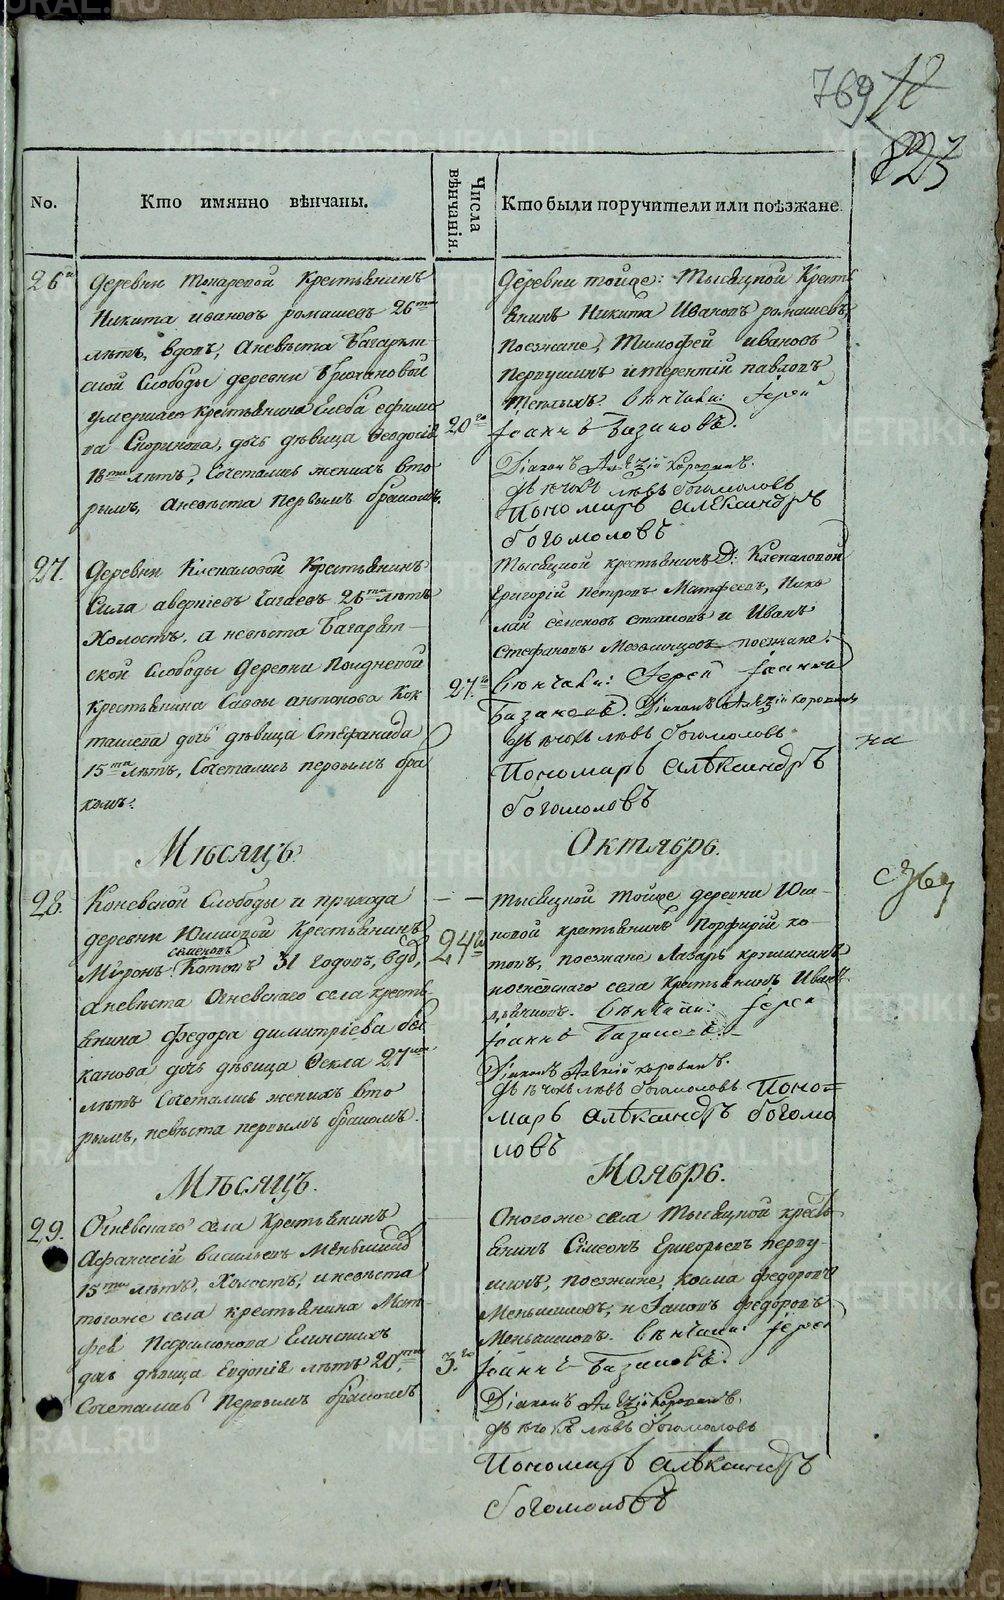 769 12
825
No.
Кто имянно вѣнчаны.
Числа вѣнчанія.
Кто были поручители или поѣзжане.
26
Деревни Токаревой Крестьянинъ
Никита ивановъ ромашевъ 26
лѣтъ, вдовъ, Аневѣста Багарят-
ской Слободы деревни
умершаго крестьянина Глеба ефимо
ва дочь дѣвица Феодосія
18 лѣтъ, Сочетались женихъ вто
рымъ, аневѣста первымъ бракомъ.
20
Деревни тойже: Тысяцкой Кресть
янинъ Никита Ивановъ ромашевъ,
Поезжане, Тимофей ивановъ
Перпушинъ итерентій павловъ
Теплыхъ. вѣнчали: Іерей
Іоаннъ Базановъ.
Діаконъ Алекзій Коровинъ.
Дьячокъ левъ богомоловъ
Пономарь Александръ
богомоловъ
27.
Деревни Клепаловой Крестьянинъ
Сила аверкіевъ 26 лѣтъ
Холостъ. а невѣста Багарят-
ской Слободы Деревни
крестьянина Савы антонова Кок
ташева дочь дѣвица Стефанида
15 лѣтъ, Сочетались первымъ бра
комъ.
27.
Тысяцкой крестьянинъ Д: Клепаловой
Григорій Петровъ Матфеевъ, Нико
лай семеновъ и Иванъ
Стефановъ поезжане.
вѣнчали: Іерей Іоаннъ
Базановъ. Діаконъ Алекзій коровинъ
Дьячокъ левъ богомоловъ
Пономарь Александръ
богомоловъ
на
Мѣсяцъ
Октябрь.
28.
Коневской Слободы и прихода
деревни Юшковой Крестьянинъ
семеновъ
Миронъ Котовъ 31 годовъ, вдв,
аневѣста Огневскаго села кресть
янина Федора димитріева
дочь дѣвица Фекла 27
лѣтъ Сочетались женихъ вто
рымъ, невѣста первымъ бракомъ.
24
тысяцкой тойже деревни Юш
ковой крестьянинъ Порфирій ко
товъ, поезжане Лазарь
иогневскаго села крестьянинъ Иванъ
вѣнчали: Іерей
Іоаннъ Базановъ.
Діаконъ Алекзій коровинъ.
Дьячокъ левъ богомоловъ Поно=
марь Александръ богомо
ловъ
Мѣсяцъ.
Ноябрь.
29.
Огневскаго села Крестьянинъ
Афанасій васильевъ Меньшиковъ
15 лѣтъ, Холостъ, иневѣста
тогоже села крестьянина Мат-
фея Парамонова
дочь дѣвица Евдокія лѣтъ 20,
Сочетались Первымъ бракомъ
3.
Оногоже села Тысяцкой кресть
янинъ Сімеонъ Григорьевъ перпу-
шинъ, поезжане, козма федоровъ
Меньшиковъ, и Іаковъ федоровъ
Меньшиковъ. вѣнчали: Іерей
Іоаннъ Базановъ.
Діаконъ Алекзій Коровинъ.
Дьячокъ левъ богомоловъ
Пономарь Александръ
богомоловъ
METRIKI.GASO-URAL.RU